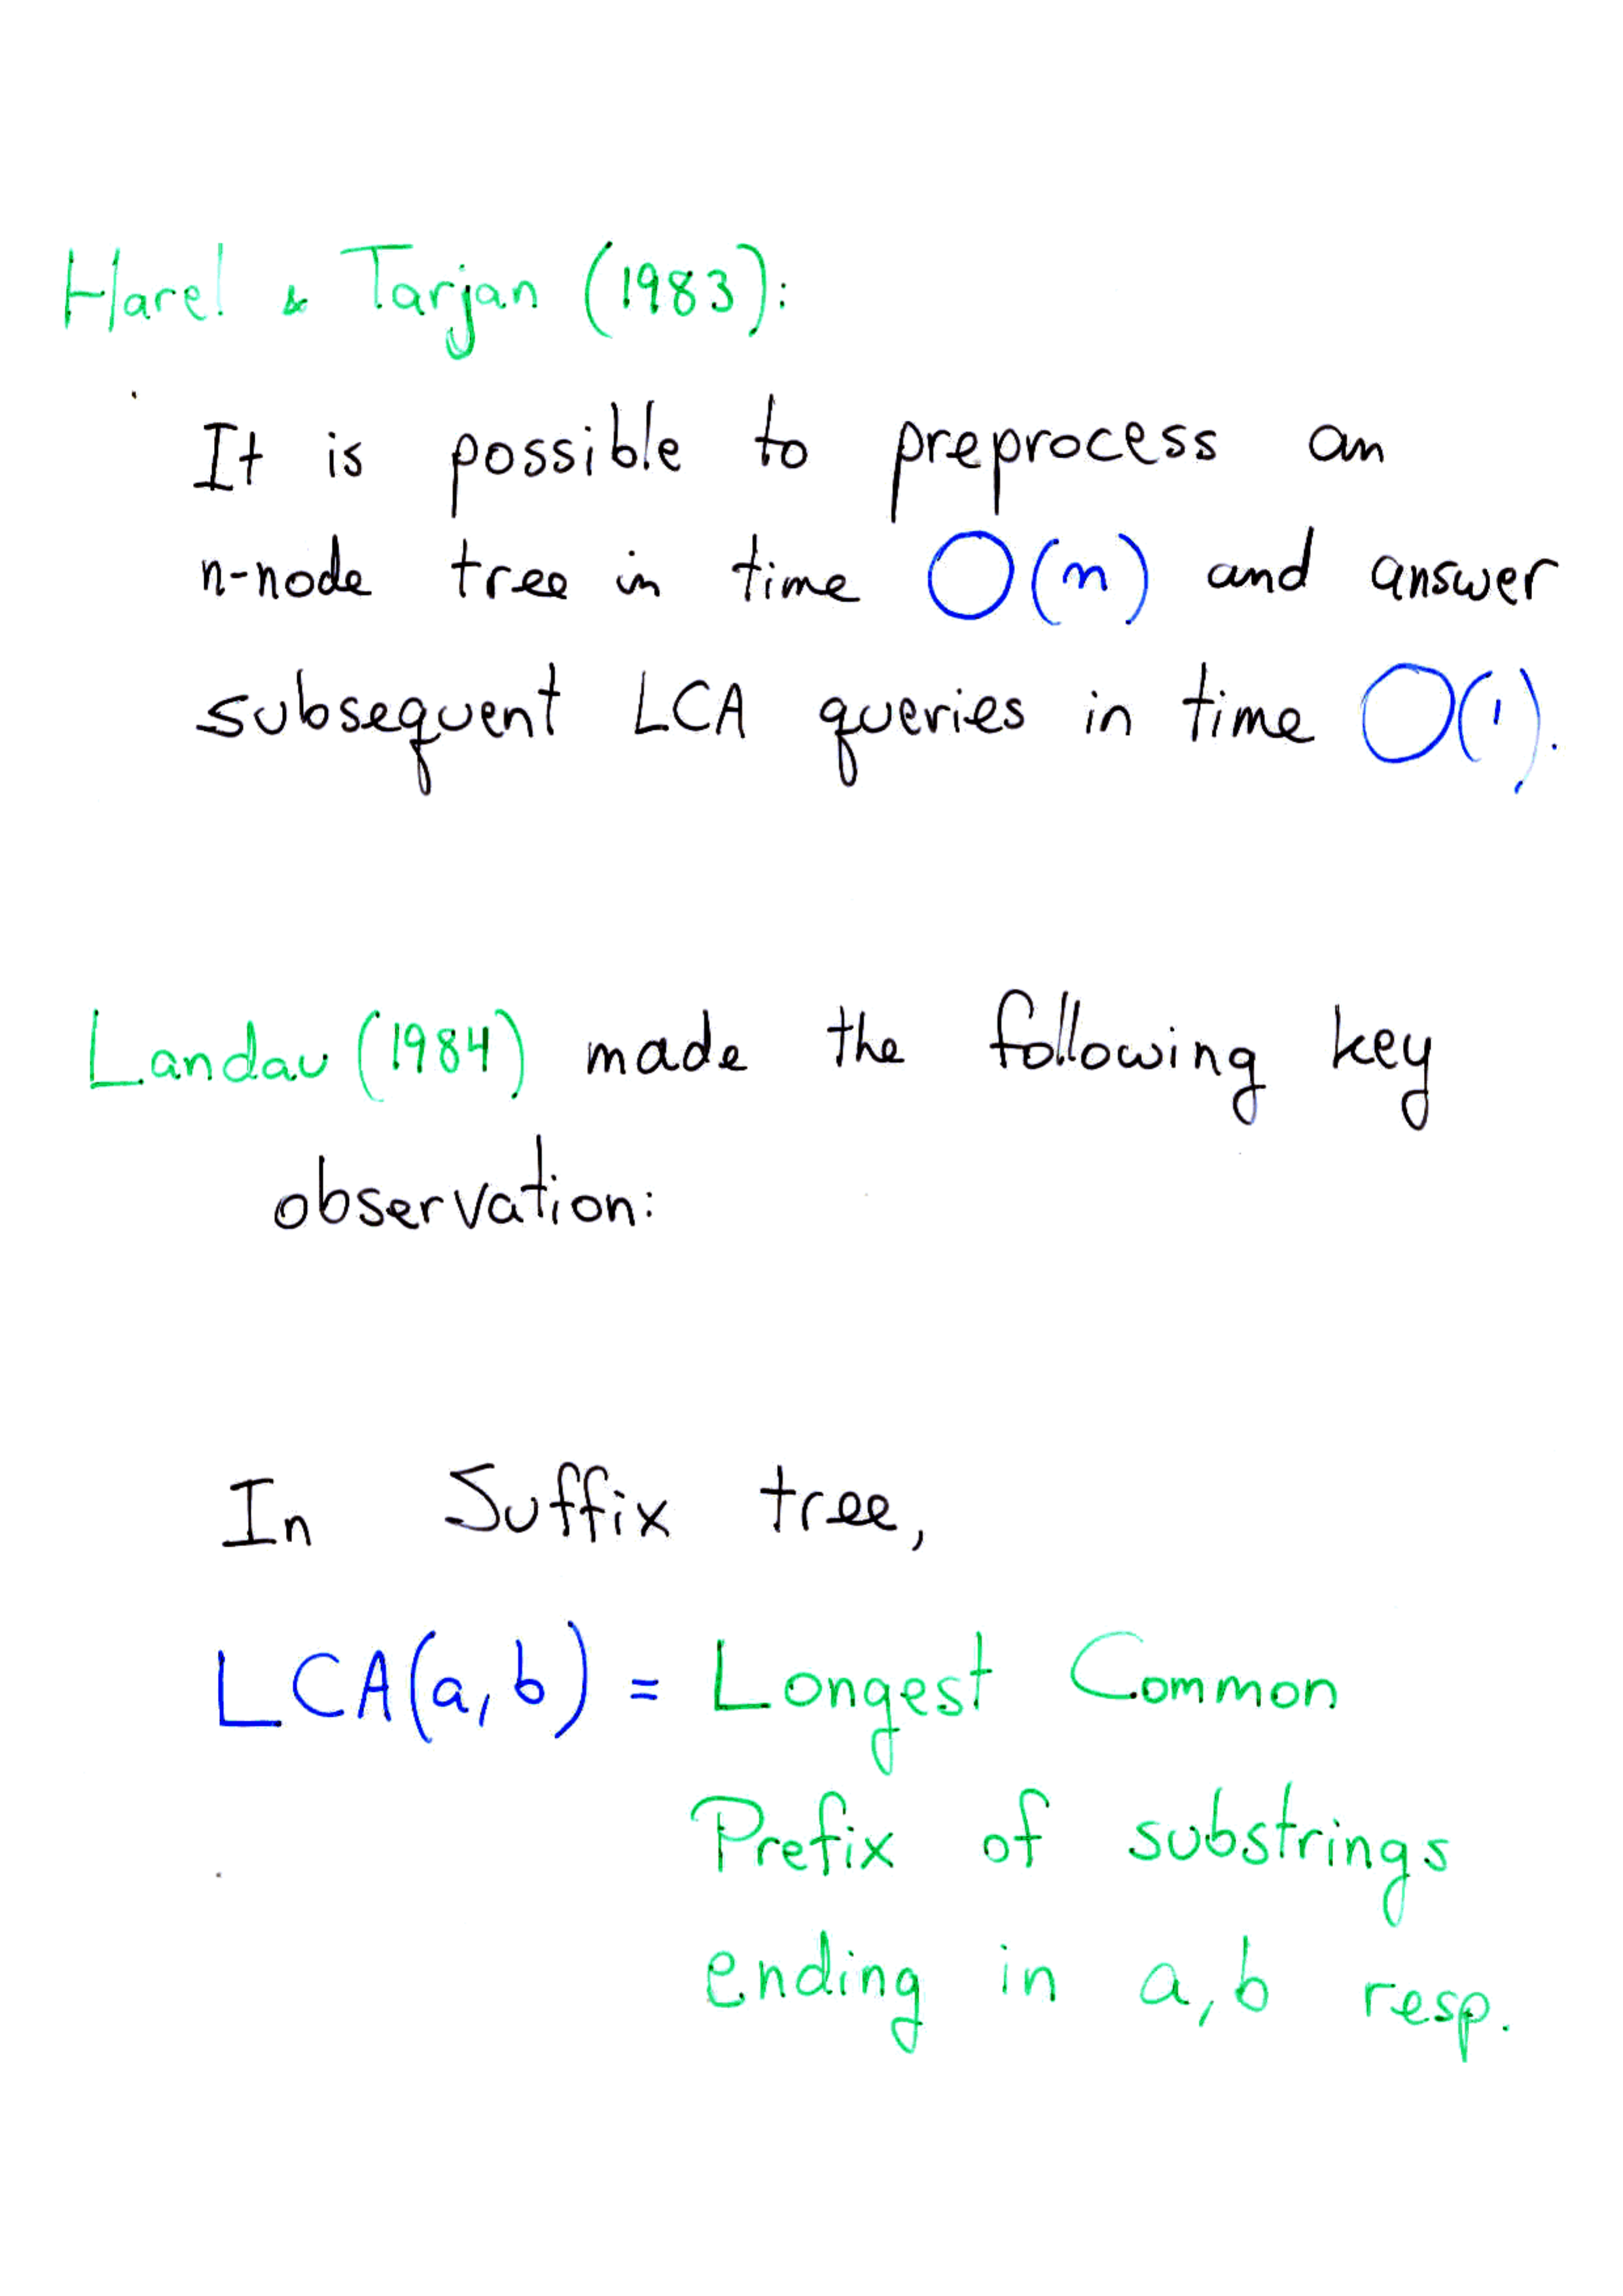 Harel & Tarjan (1983):
It is possible to preprocess an
n-node tree in time O(n) and answer
subsequent LCA queries in time O(1).
Landau (1984) made the following key
observation:
In Suffix tree,
LCA(a,b) = Longest Common
Prefix of substrings
ending in a,b resp.